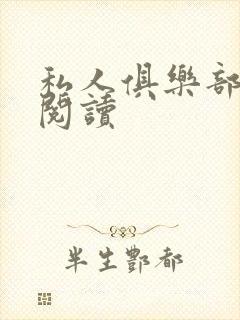 私人俱樂部
閱讀
半生酆都